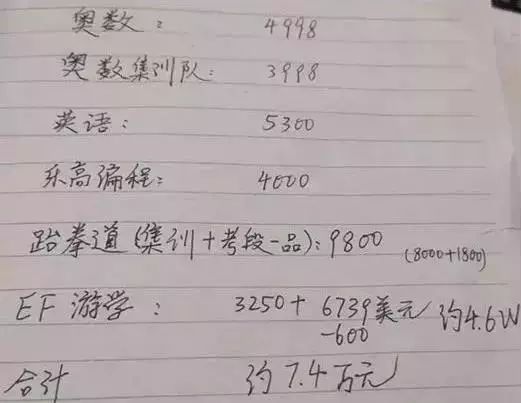 奥数： 4998
奥数集训队： 3998
英语： 5300
乐高编程： 4000
跆拳道（集训+考段一品）：9800 (8000+1800)
EF 游学： 3250+ 6739美元 约4.6W
-600
合计 约7.4万元